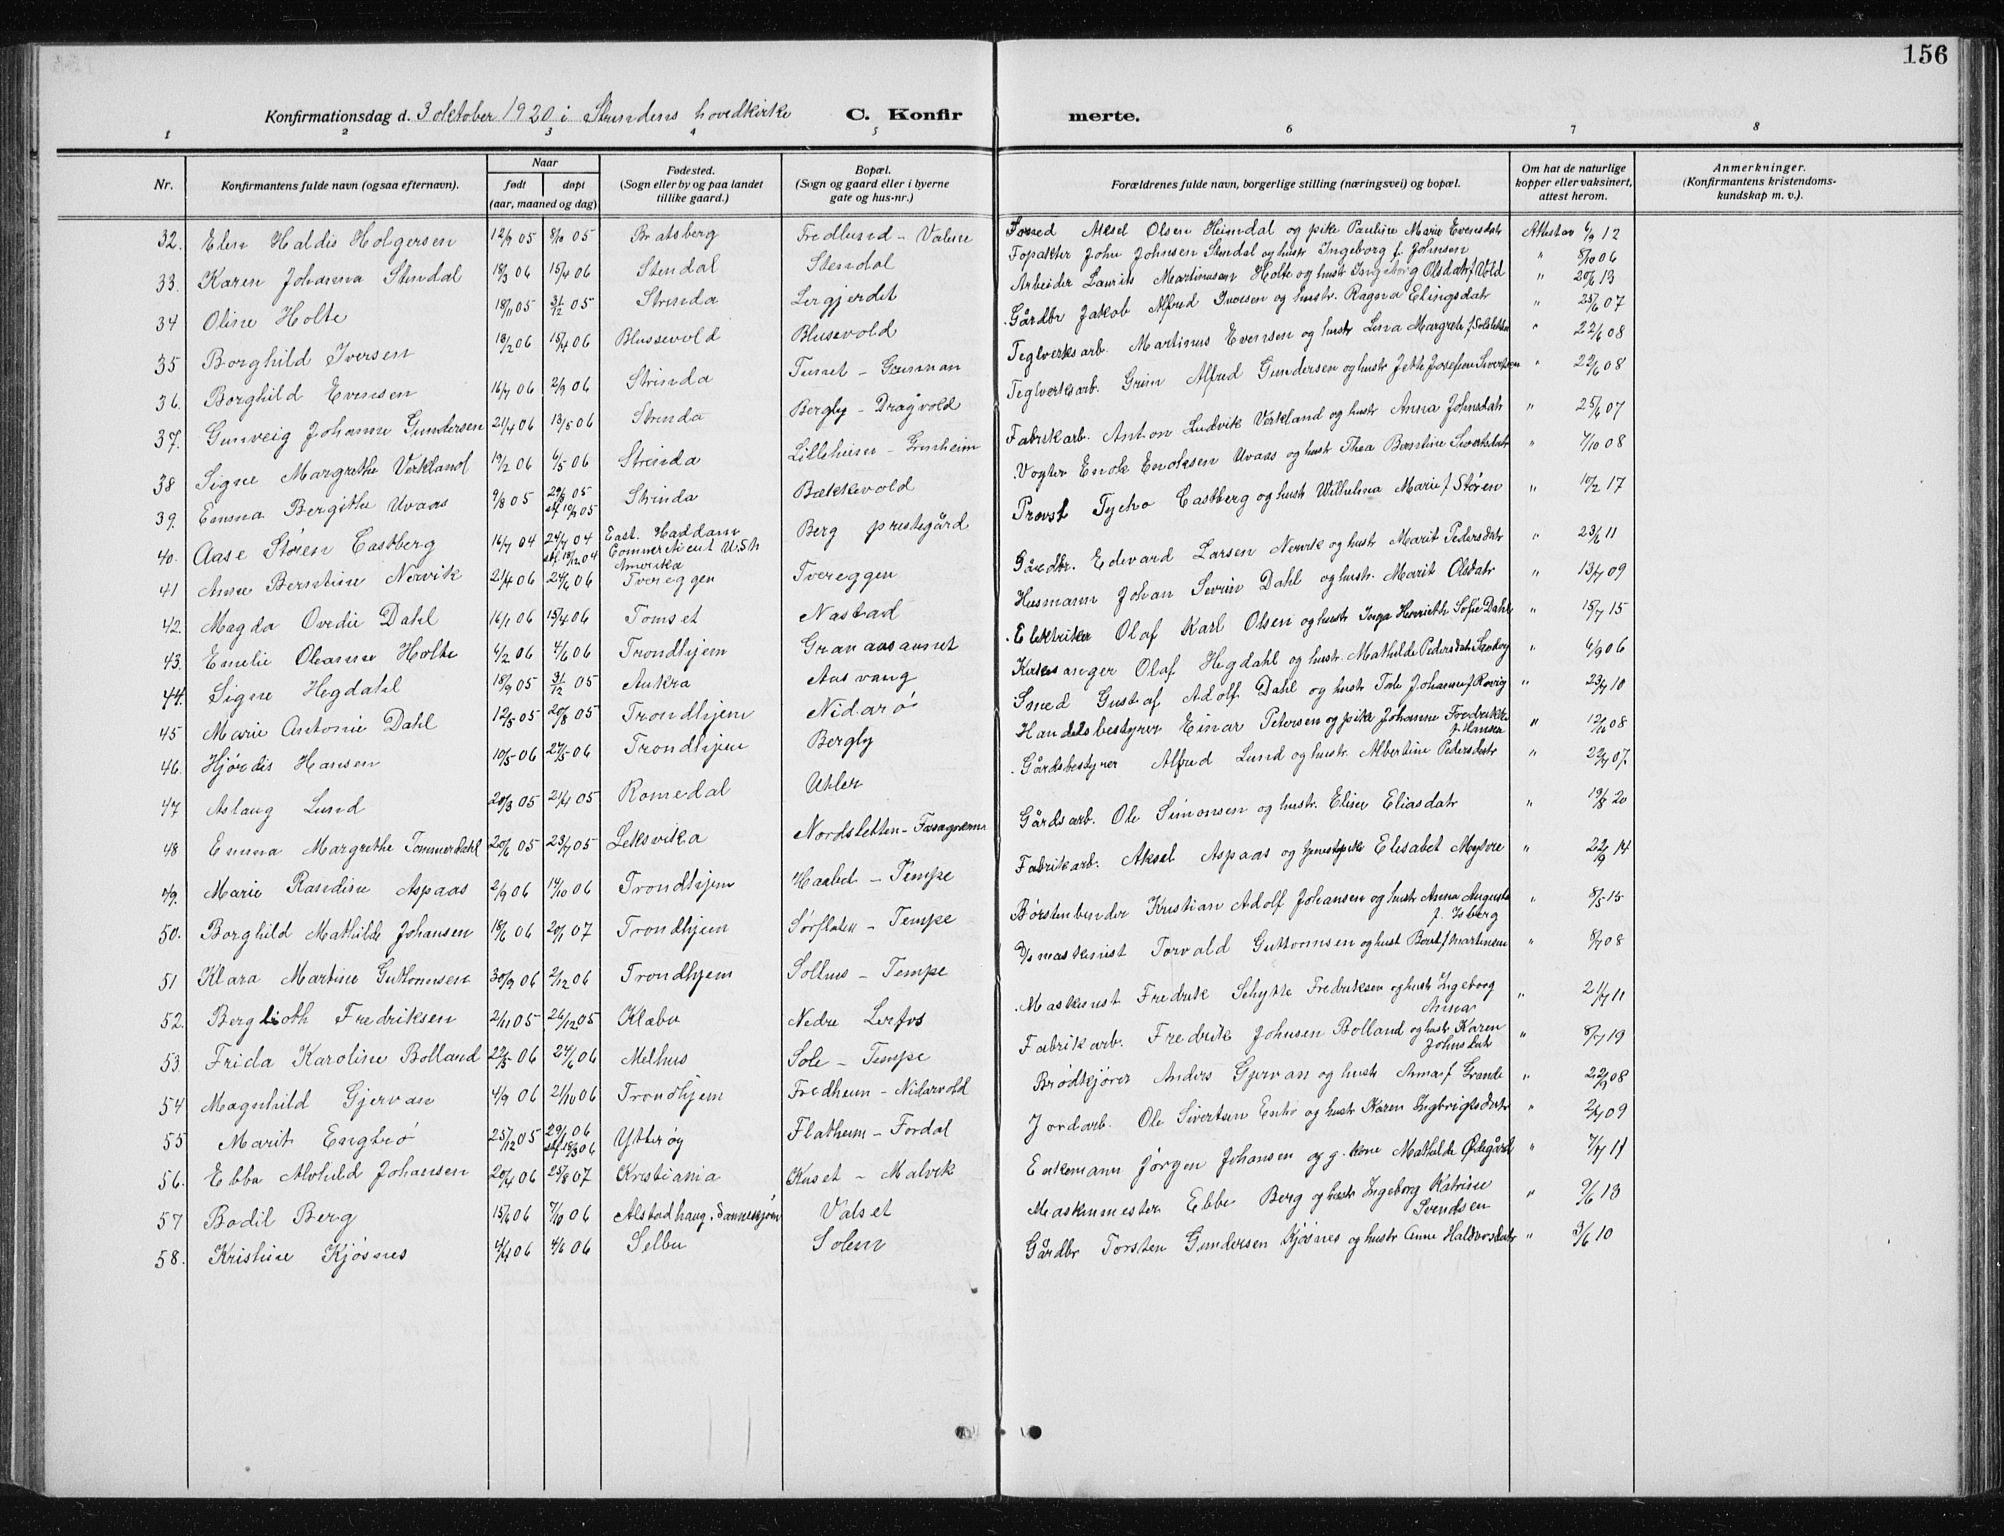 156
Konfirmationsdag d. 3 oktober 1920 i Strindens hovedkirke C. Konfirmerte.
1 2 3 4 5 6 7 8
Nr. Konfirmantens fulde navn (ogsaa efternavn). Naar født døpt (aar, maaned og dag) Fødested. (Sogn eller by og paa landet tillike gaard.) Bopæl. (Sogn og gaard eller i byerne gate og hus-nr.) Forældrenes fulde navn, borgerlige stilling (næringsvei) og bopæl. Om hat de naturlige kopper eller vaksinert, attest herom. Anmerkninger. (Konfirmantens kristendomskundskap m. v.).
32. Elen Haldis Holgersen 12/9 05 8/10 05 Bratsberg Fredlund - Valene Smed Aksel Olsen Heimdal og pike Pauline Marie Evensdatr Attestar 6/9 12
33. Karen Johanna Stendal 18/3 06 15/4 06 Stendal Stendal John Johnsen Stendal og hustr Ingeborg f. Johnsen " 8/10 06
34 Oline Holte 18/11 05 31/12 05 Strinda Lergjerdet Arbeider Laurits Martinusen Holte og hustr Ingeborg Olsdatr f Vold " 20/6 13
35 Borghild Iversen 18/2 06 15/4 06 Blussevold Blusevold Gårdbr Jakob Alfred Iversen og hustr. Ragna Elingsdatr " 25/6 07
36. Borghild Evensen 16/7 06 2/9 06 Strinda Tuset - Granman Teglverksarb. Martinus Evensen og hustr Lina Margrete f " 22/6 08
37. Gunveig Johanne Gundersen 21/4 06 13/5 06 Strinda Bergly - Dragvold Teglverksarb. Grim Alfred Gundersen og hustr Jette Josefine Sivertsen " 22/6 08
38 Signe Margrethe Verkland 19/2 06 6/5 06 Strinda Lillehuen - Grinheim Fabrikarb. Anton Ludvik Verkland og hustr Anna Johnsdatr " 25/6 07
39. Emma Bergitte Uvaas 9/8 05 29/8 05 stf. 10/9 05 Strinda Bækkevold Vogter Enok Enoksen Uvaas og hustr Thea Berntine Sivertsdatr " 7/10 08
40. Aase Støren Castberg 16/7 04 24/7 04 stf. 18/12 04 East. Haddam Connecticut U.St. Amerika Berg prestegård Provst Tycho Castberg og hustr Wilhelma Marie f Støren " 10/2 17
41 Anne Berntine Nervik 21/4 06 24/6 06 Tvereggen Tvereggen Gårdbr. Edevard Larsen Nervik og hustr Marit Pedersdatr " 23/6 11
42. Magda Ovedie Dahl 16/1 06 15/4 06 Tomset Nastad Husmann Johan Severin Dahl og hustr. Marit Olsdatr " 13/7 09
43. Emelie Oleanne Holte 4/2 06 4/6 06 Trondhjem Granaasaunet Elektriker Olaf Karl Olsen og hustr Inga Henrieth Sofie Dahl " 15/7 15
44. Signe Hegdahl 18/9 05 31/12 05 Aukra Aasvang Kirkesanger Olaf Hegdahl og hustr. Mathilde Pedersdatr " 6/9 06
45 Marie Antonie Dahl 12/5 05 20/8 05 Trondhjem Nidarø Smed Gustaf Adolf Dahl og hustr Tale Johanne f Rovig " 23/7 10
46. Hjørdis Hansen 10/5 06 27/5 06 Trondhjem Bergly Handelsbestyrer Einar Petersen og pike Johanne Fredrikke f. Hansen " 12/10 08
47 Aslaug Lund 20/3 05 21/4 05 Romedal Uhler Gårdsbestyrer Alfred Lund og hustr. Albertine Pedersdatr " 22/7 07
48 Emma Margrethe Tommerdahl 20/6 05 23/7 05 Leksvika Nordsletten - Gårdsarb. Ole Simonsen og hustr. Elise Eliasdatr " 19/8 20
49. Marie Rasidise Aspaas 2/9 06 14/10 06 Trondhjem Haabet - Tempe Fabrikarb. Aksel Aspaas og tjenestepike Elisabet Mysre " 22/9 14
50. Borghild Mathilde Johansen 18/6 06 20/1 07 Trondhjem Sørflaten - Tempe Børstenbinder Kristian Adolf Johansen og hustr Anna Augusta f. Isberg " 8/5 15
51 Klara Martine Guttormsen 30/9 06 2/12 06 Trondhjem Solhus - Tempe D/s maskinist Torvald Guttormsen og hust Berit f Martinsen " 8/7 08
52. Bergljoth Fredriksen 2/11 05 26/12 05 Klæbu Nedre Lerfos Maskinist Fredrik Schytte Fredriksen og hustr Ingeborg Anna " 21/7 11
53. Frida Karoline Bolland 22/5 06 24/6 06 Melhus Sole - Tempe Fabrikarb. Fredrik Johnsen Bolland og hustr Karen Johnsdatr " 8/7 19
54 Magnhild Gjervan 4/9 06 21/10 06 Trondhjem Fredheim - Nidarvold Brødkjører Anders Gjervan og hustr Anna f Grande " 22/9 08
55 Marit Engbrø 25/12 05 29/1 06 stf. 18/3 06 Ytterøy Flatheim - Fordal Jordarb. Ole Sivertsen og hustr Karen Ingbrigtsdatr " 2/7 09
56. Ebba Alvhild Johansen 20/4 06 25/8 07 Kristiania Kuset - Malvik Enkemann Jørgen Johansen og g. kone Mathilde Ødegård " 7/7 11
57 Bodil Berg 15/6 06 7/10 06 Alstadhaug, Sannesjøen Valset Maskinmester Ebbe Berg og hustr Ingeborg Katrine Svendsen " 9/6 13
58. Kristine Kjøsnes 4/4 06 4/6 06 Selbu Solem Gårdbr Torsten Gundersen Kjøsnes og hustr Anne Haldvorsdatr " 3/6 10